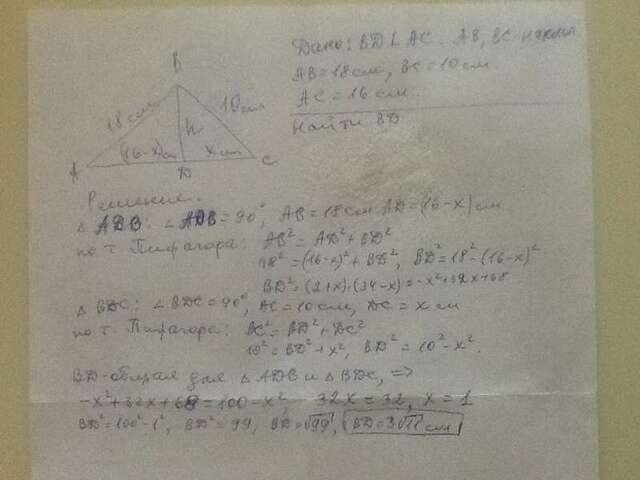 Дано: BD⊥AC. AB, BC-накл
AB=18см, BC=10см
AC=16см
Найти BD
B
18см
10см
h
(16-x)см
x см
A
D
C
Решение.
△ ADB: ∠ADB=90°, AB=18см AD=(16-x)см
по т. Пифагора: AB²=AD²+BD²
18²=(16-x)²+BD², BD²=18²-(16-x)²
BD²=(2+x)·(34-x)=-x²+32x+68
△ BDC: ∠BDC=90°, BC=10см, DC=x см
по т. Пифагора: BC²=BD²+DC²
10²=BD²+x², BD²=10²-x².
BD-общая для △ADB и △BDC, =>
-x²+32x+68=100-x², 32x=32, x=1
BD²=100-1², BD²=99, BD=√99, BD=3√11см